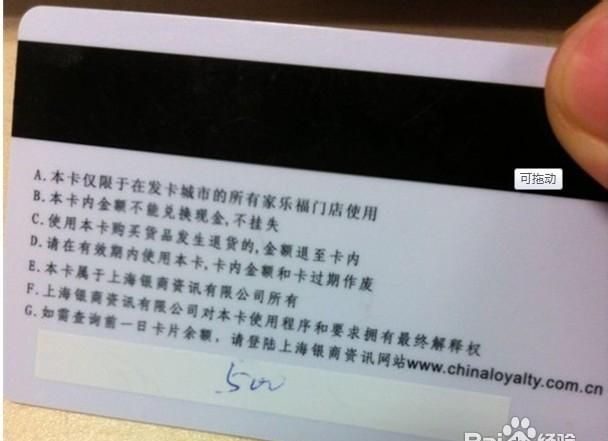 可拖动
A.本卡仅限于在发卡城市的所有家乐福门店使用
B.本卡内金额不能兑换现金,不挂失
C.使用本卡购买货品发生退货的,金额退至卡内
D.请在有效期内使用本卡,卡内金额和卡过期作废
E.本卡属于上海银商资讯有限公司所有
F.上海银商资讯有限公司对本卡使用程序和要求拥有最终解释权
G.如需查询前一日卡片余额，请登陆上海银商资讯网站www.chinaloyalty.com.cn
500